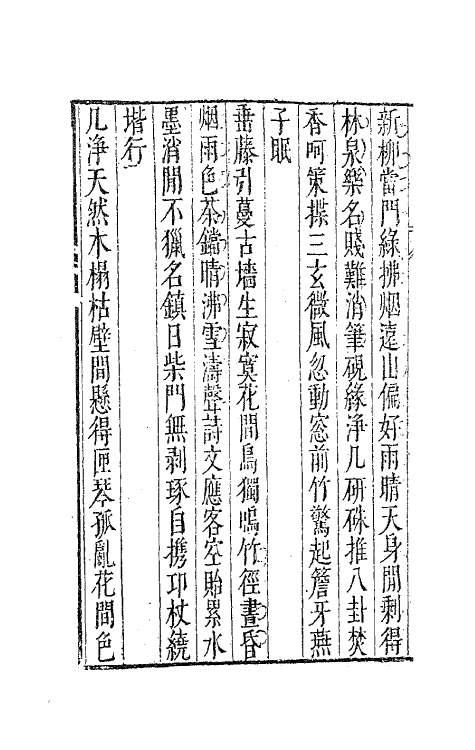 新柳當門綠拂烟遠山偏好雨晴天身閒剩得
林泉樂名賤難消筆硯緣淨几研硃推八卦焚
香呵策揲三玄微風忽動窓前竹驚起簷牙燕
子眠
垂藤引蔓古墻生寂寞花間鳥獨鳴竹徑晝昏
烟雨色茶鐺晴沸雪濤聲詩文應客空貽累水
墨消閒不獵名鎮日柴門無剥琢自携卭杖繞
堦行
几淨天然木榻枯壁間懸得匣琴孤亂花間色